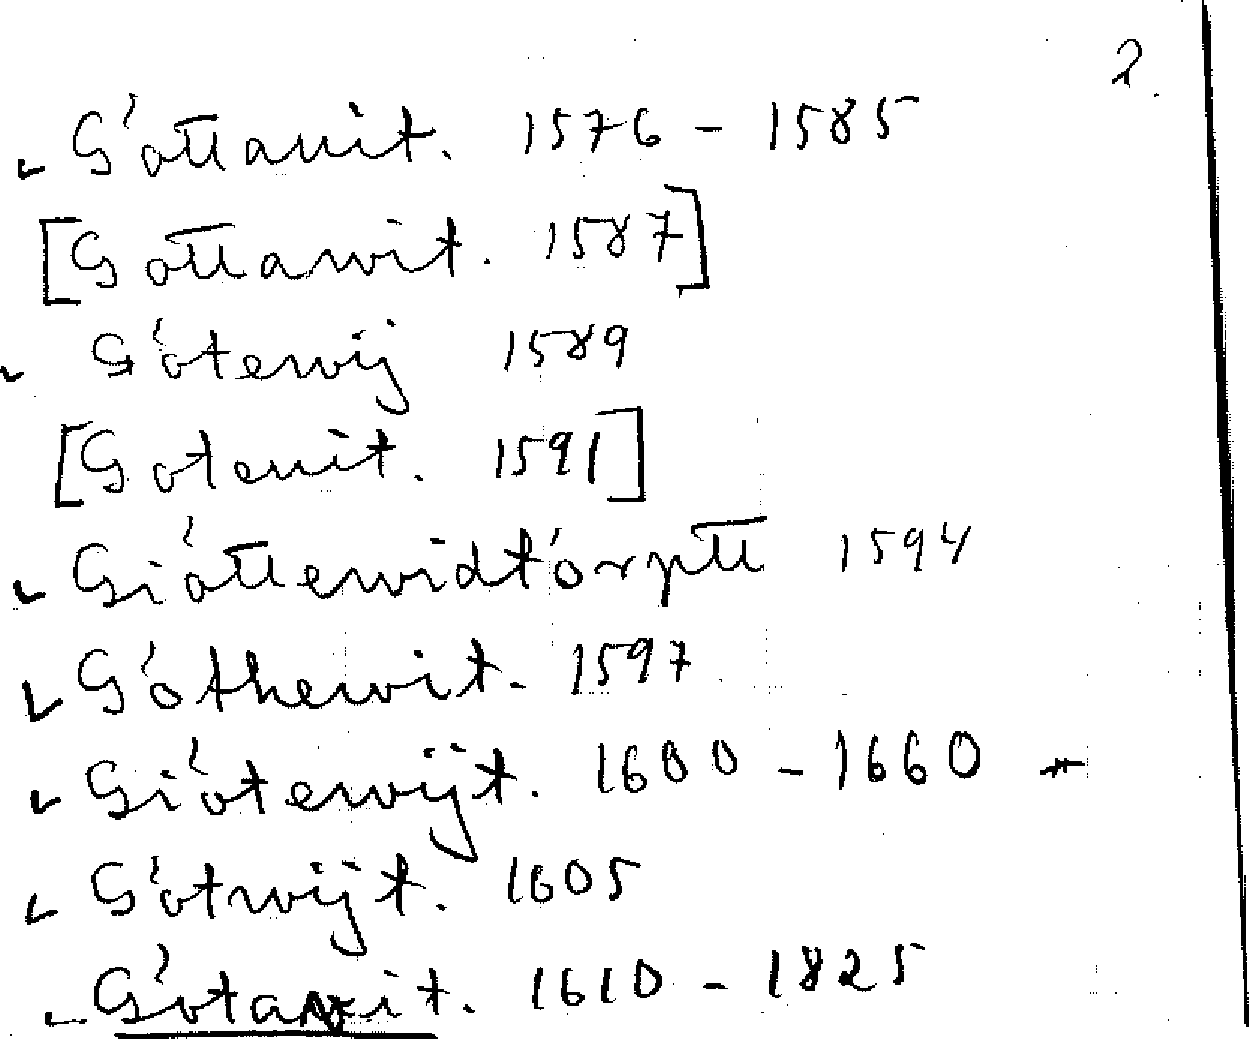 2.
Góttauit. 1576 - 1585
[Gottawit. 1587]
Gótewij 1589
[Goteuit. 1591]
Gióttewidtórptt 1594
Góthewit. 1597
Giótewijt. 1600 - 1660 *
Gótwijt. 1605
Gótawit. 1610 - 1825